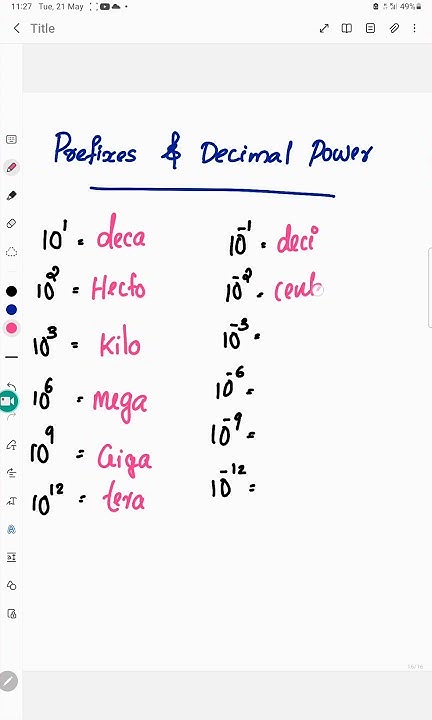 11:27 Tue, 21 May
49%
Title
Prefixes & Decimal Power
10¹ = deca
10² = Hecto
10³ = Kilo
10⁶ = Mega
10⁹ = Giga
10¹² = tera
10⁻¹ = deci
10⁻² = cent
10⁻³ =
10⁻⁶ =
10⁻⁹ =
10⁻¹² =
16/16